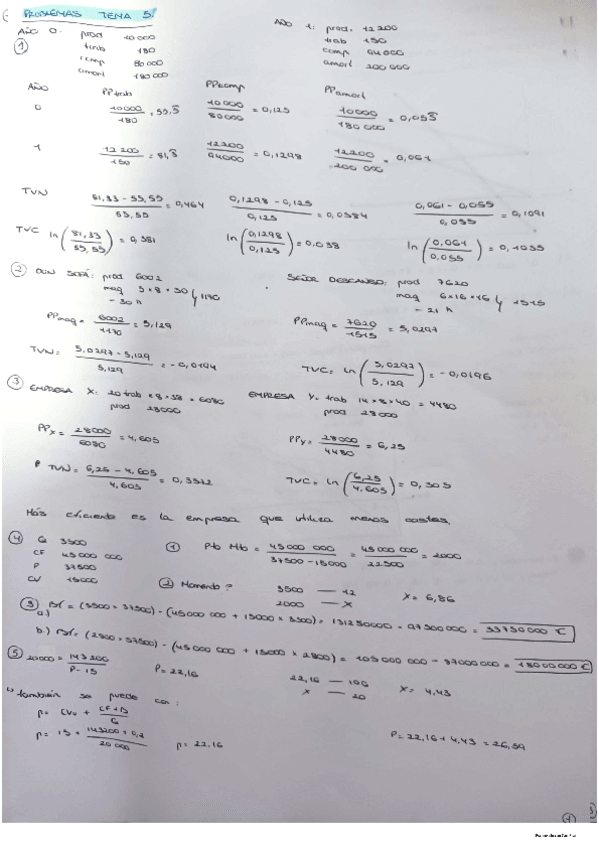 PROBLEMAS TEMA 5!
AÑO 0: prod 10000
trab 180
comp 80000
amort 180000
AÑO 1: prod: 12200
trab 150
comp 94000
amort 200000
①
AÑO PPtrab PPcomp PPamort
0 10000/180 = 55,5 10000/80000 = 0,125 10000/180000 = 0,055
1 12200/150 = 81,3 12200/94000 = 0,1298 12200/200000 = 0,061
TVN (81,33 - 55,55)/55,55 = 0,464 (0,1298 - 0,125)/0,125 = 0,0384 (0,061 - 0,055)/0,055 = 0,1091
TVC ln(81,33/55,55) = 0,381 ln(0,1298/0,125) = 0,038 ln(0,061/0,055) = 0,1035
② DON SOFÁ: prod 6002
maq 5 x 8 x 30 - 30 h } 1170
SEÑOR DESCANSO: prod 7620
maq 6x16x16 - 21 h } 1515
PPmaq = 6002/1170 = 5,129 PPmaq = 7620/1515 = 5,0297
TVN = (5,0297 - 5,129)/5,129 = -0,0194 TVC = ln(5,0297/5,129) = -0,0196
③ EMPRESA X: 20 trab x 8 x 38 = 6080 EMPRESA Y: trab 14 x 8 x 40 = 4480
prod 28000 prod 28000
PPx = 28000/6080 = 4,605 PPy = 28000/4480 = 6,25
TVN = (6,25 - 4,605)/4,605 = 0,3572 TVC = ln(6,25/4,605) = 0,305
Más eficiente es la empresa que utiliza menos costes.
④ Q 3500
CF 45 000 000
P 37500
CV 15000
① Pto Mto = 45 000 000/(37500 - 15000) = 45 000 000/22500 = 2000
② Momento? 3500 — 12
2000 — X X = 6,86
③ a) Bº = (3500 x 37500) - (45 000 000 + 15000 x 3500) = 131250000 - 97500000 = 33750000 €
b.) Bº = (2800 x 37500) - (45 000 000 + 15000 x 2800) = 105 000 000 - 87000000 = 18000000 €
⑤ 20000 = 143200/(P - 15) P = 22,16 22,16 — 100
x — 20 X = 4,43
también se puede con:
p = CVu + (CF + B)/Q
p = 15 + (143200 + 0)/20 000 p = 22,16 P = 22,16 + 4,43 = 26,59